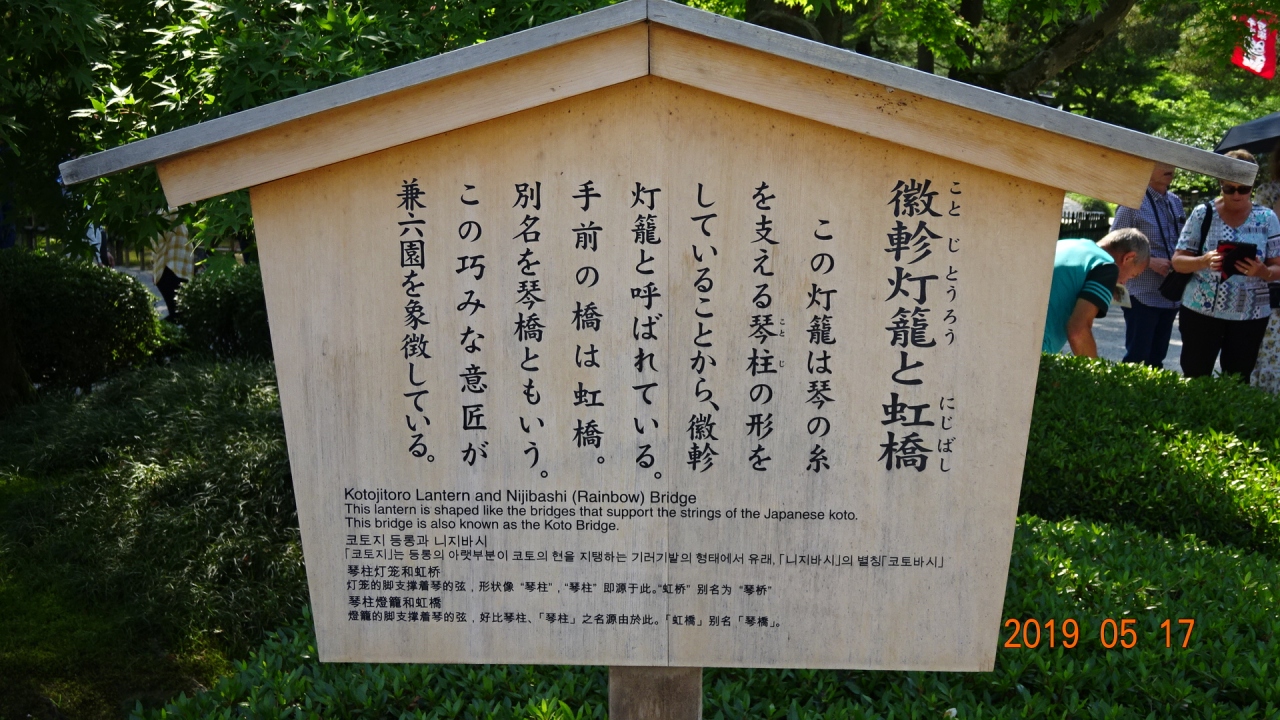 徽軫灯籠と虹橋
ことじとうろう
にじばし
この灯籠は琴の糸
を支える琴柱の形を
ことじ
していることから、徽軫
灯籠と呼ばれている。
手前の橋は虹橋。
別名を琴橋ともいう。
この巧みな意匠が
兼六園を象徴している。
Kotojitoro Lantern and Nijibashi (Rainbow) Bridge
This lantern is shaped like the bridges that support the strings of the Japanese koto.
This bridge is also known as the Koto Bridge.
코토지 등롱과 니지바시
「코토지」는 등롱의 아랫부분이 코토의 현을 지탱하는 기러기발의 형태에서 유래, 「니지바시」의 별칭「코토바시」
琴柱灯笼和虹桥
灯笼的脚支撑着琴的弦，形状像“琴柱”，“琴柱”即源于此。“虹桥”别名为“琴桥”
琴柱燈籠和虹橋
燈籠的脚支撑着琴的弦，好比琴柱、「琴柱」之名源由於此。「虹橋」别名「琴橋」。
2019 05 17